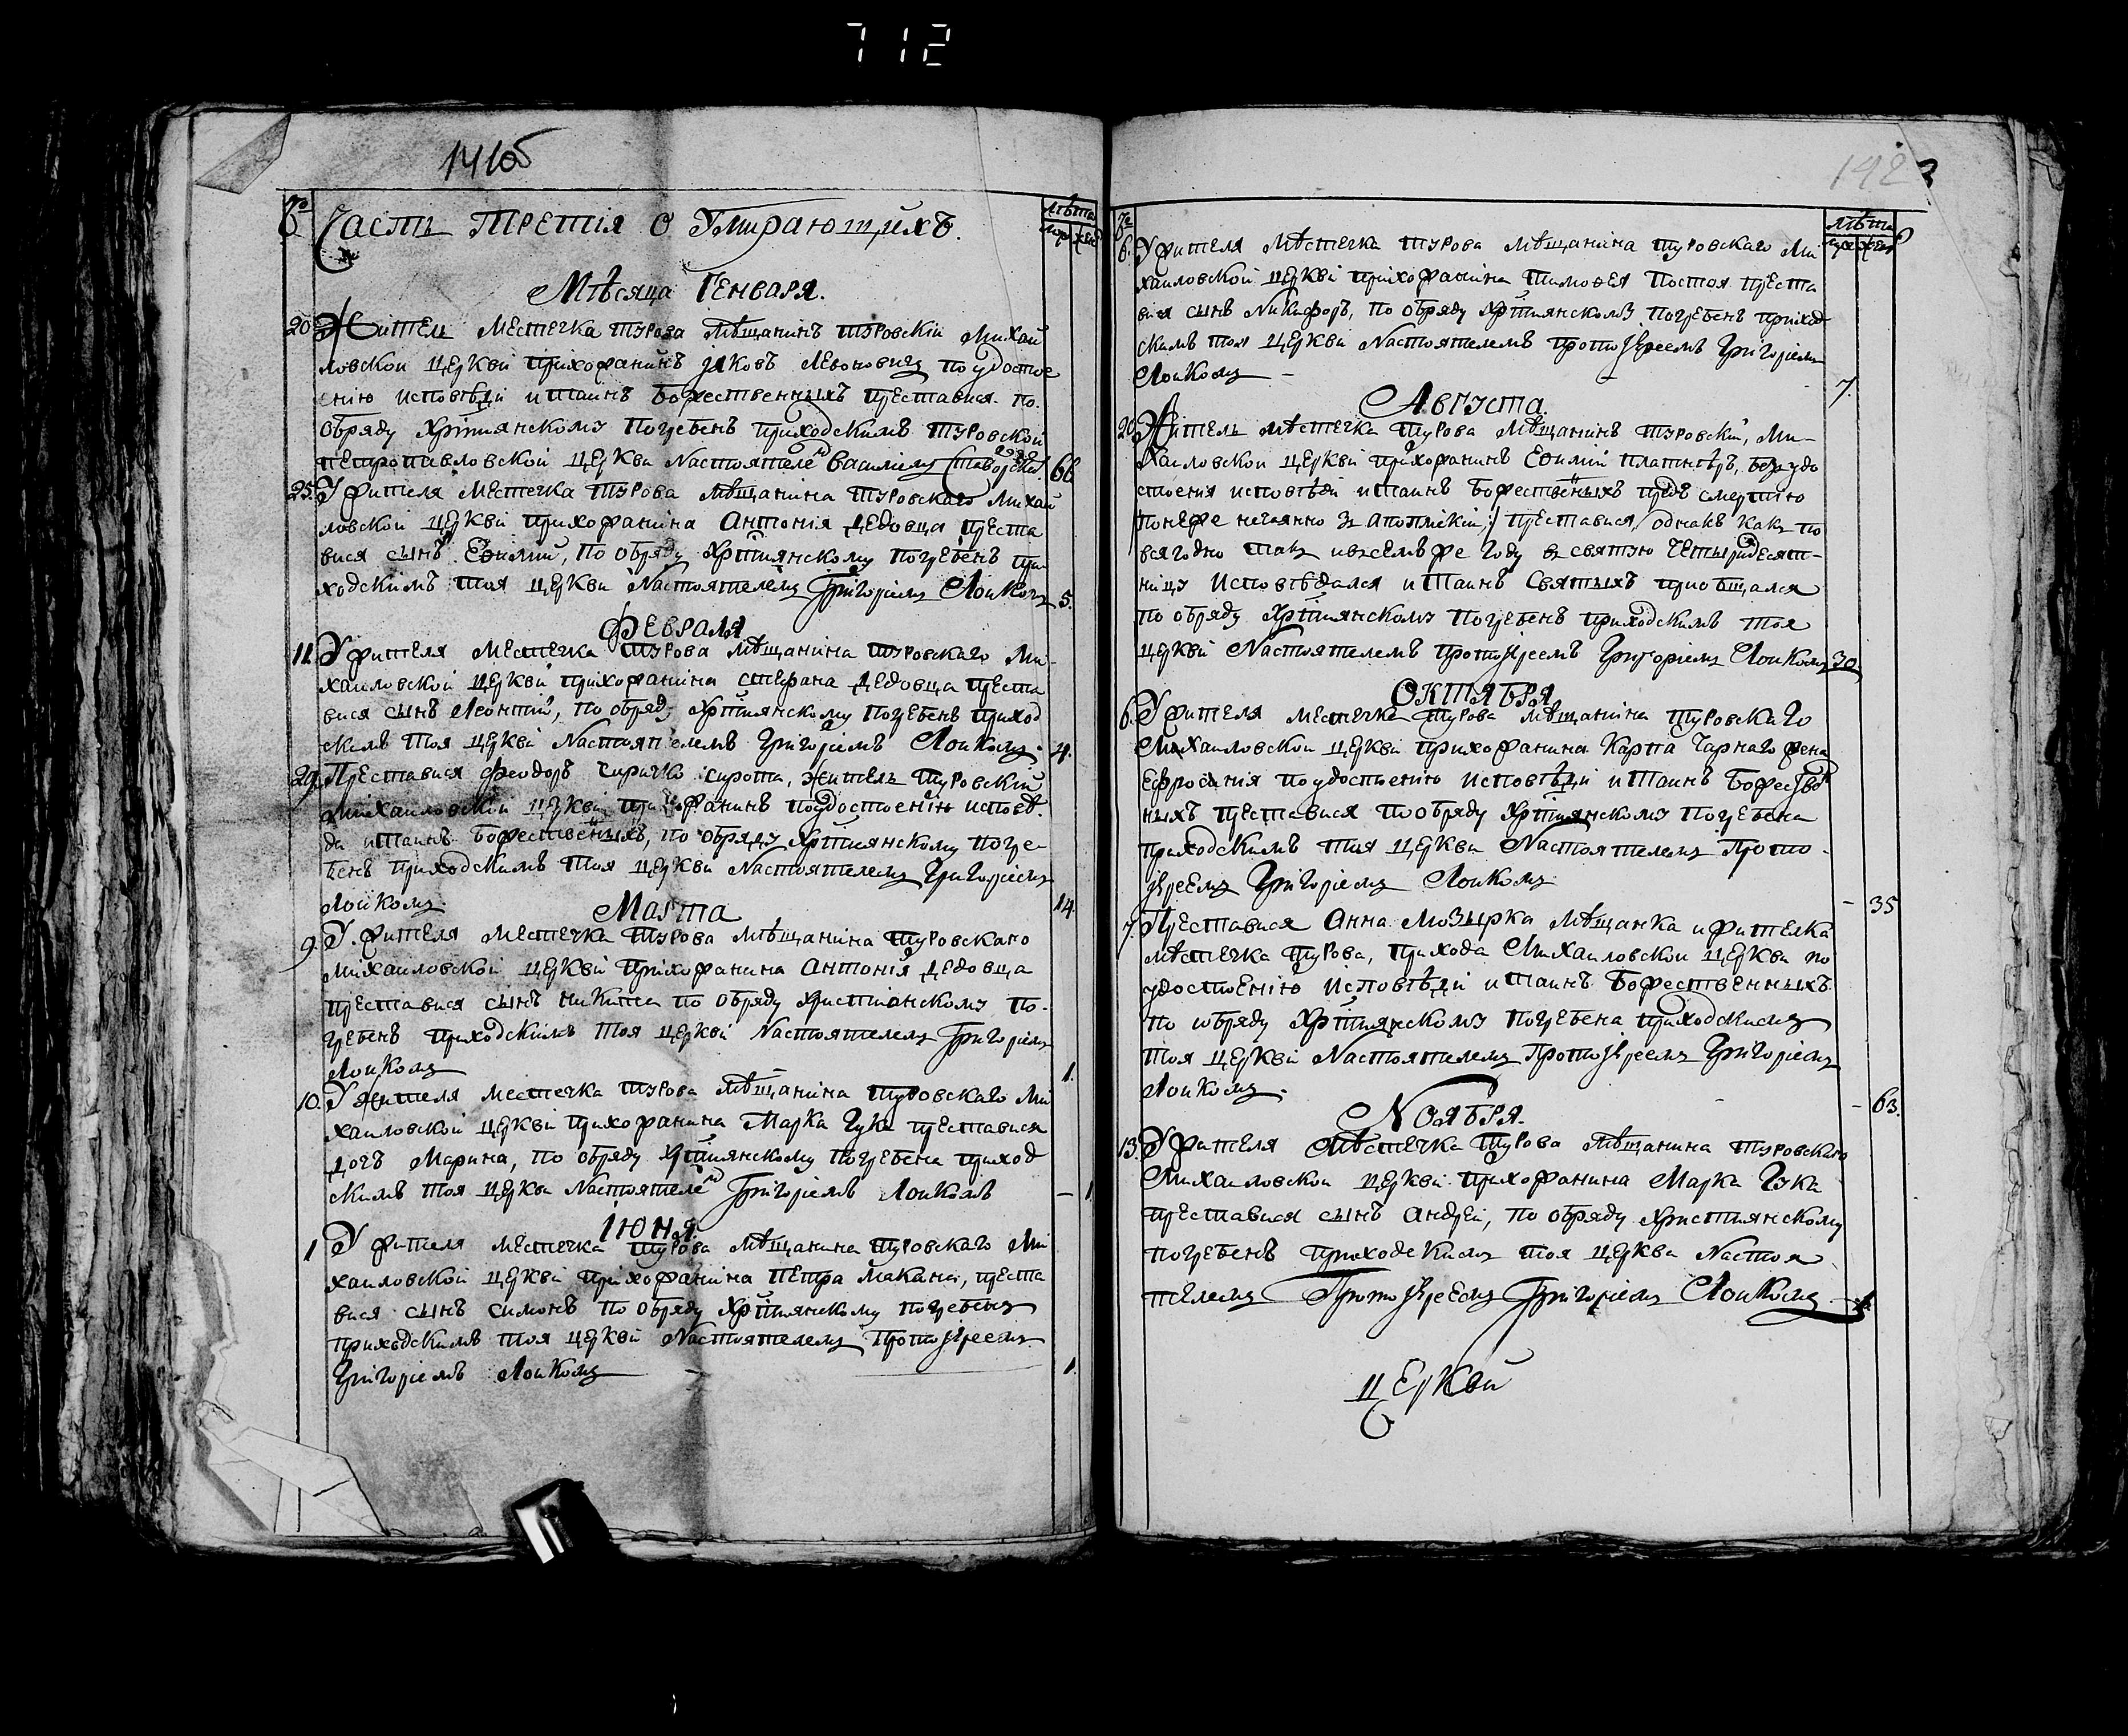 712
141об
Часть третія о Умирающихъ.
лѣта
муж жен
Мѣсяца Генваря.
20 Житель местечка Турова мѣщанинъ туровскій Михай
ловской церкви прихожанинъ Яковъ Левоновичъ по удостое
енію исповѣди и таинъ божественныхъ преставися по
обряду хрістіянскому погребенъ приходскимъ туровской
петропавловской церкви Настоятелемъ Василіемъ 66
25. У жителя местечка Турова мѣщанина туровскаго Михай
ловской церкви прихожанина Антонія Дедовца преста
вися сынъ Еѳимій, по обряду хрістіянскому погребенъ при
ходскимъ тоя церкви Настоятелемъ Григоріемъ Лойкомъ 5.
Февраля
11. У жителя местечка Турова мѣщанина туровскаго Ми-
хаиловской церкви прихожанина стефана Дедовца преста
вися сынъ Леонтій, по обряду хрістіянскому погребенъ приход
скимъ тоя церкви Настоятелемъ Григоріемъ Лойкомъ. 4.
29. Преставися феодоръ чиричко сирота, житель Туровскій
михаиловской церкви прихожанинъ по удостоенію исповѣ
ди и таинъ божественныхъ, по обряду хрістіянскому погре-
бенъ приходскимъ тоя церкви Настоятелемъ Григоріемъ
Лойкомъ. 14.
Марта
9. У жителя местечка Турова мѣщанина Туровскаго
михаиловской церкви прихожанина Антонія Дедовца
преставися сынъ никита по обряду христіанскому по-
гребенъ приходскимъ тоя церкви Настоятелемъ Григоріемъ
Лойкомъ 1.
10. У жителя местечка Турова мѣщанина Туровскаго Ми
хаиловской церкви прихожанина Марка Гука преставися
дочъ Марина, по обряду хрістіянскому погребена приход
скимъ тоя церкви Настоятелемъ Григоріемъ Лойкомъ – 1
Іюня.
1 У жителя местечка Турова мѣщанина Туровскаго Ми
хаиловской церкви прихожанина петра макана, преста
вися сынъ симонъ по обряду хрістіянскому погребенъ
приходскимъ тоя церкви Настоятелемъ Протоіереемъ
Григоріемъ Лойкомъ – 1.
142
лѣта
муж жен
6. У жителя мѣстечка турова мѣщанина туровскаго Ми
хаиловской церкви прихожанина тимоѳея постоя преста
вися сынъ Никифоръ, по обряду хрістіянскому погребенъ приход
скимъ тоя церкви Настоятелемъ протоіереемъ Григоріемъ
Лойкомъ – 7.
Августа.
20 Житель мѣстечка Турова мѣщанинъ туровскій, Ми-
хаиловской церкви прихожанинъ Еѳимій платнѣръ, без удо
стоенія исповѣди и таинъ божественныхъ предъ смертію
понеже нечаянно з апоплекіи, преставися однакъ какъ по
всягодно такъ и въ семъ же году въ святую четыридесят-
ницу исповѣдался и таинъ святыхъ приобщался
по обряду хрістіянскому погребенъ приходскимъ тоя
церкви Настоятелемъ протоіереемъ Григоріемъ Лойкомъ 30.
Октября
6. У жителя местечка Турова мѣщанина Туровскаго
Михаиловской церкви прихожанина Карпа Чарнаго жена
Ефросинія по удостоенію исповѣди и таинъ божестве
ныхъ преставися по обряду хрістіянскому погребена
приходскимъ тоя церкви Настоятелемъ Прото-
іереемъ Григоріемъ Лойкомъ
– 35
7. Преставися Анна Мозырка мѣщанка и жителка
мѣстечка Турова, прихода Михаиловской церкви по
удостоенію исповѣди и таинъ божественныхъ
по обряду хрістіянскому погребена приходскимъ
тоя церкви Настоятелемъ Протоіереемъ Григоріемъ
Лойкомъ. – 63.
Ноября.
13. У жителя Мѣстечка Турова мѣщанина туровскаго
Михаиловской церкви прихожанина Марка Гука
преставися сынъ Андрей, по обряду христіянскому
погребенъ приходскимъ тоя церкви Настоя
телемъ Протоіереемъ Григоріемъ Лойкомъ
Церкви